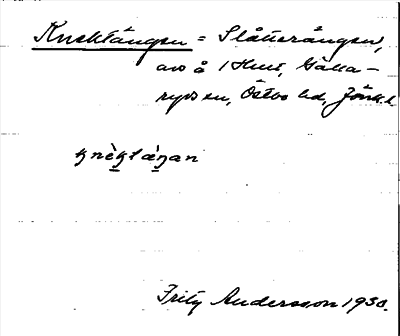 Knektängen = Slåtterängen,
avs å 1 Hult, Gälla-
ryds sn, Östbo hd, Jönk. l.
Fritz Andersson 1930.